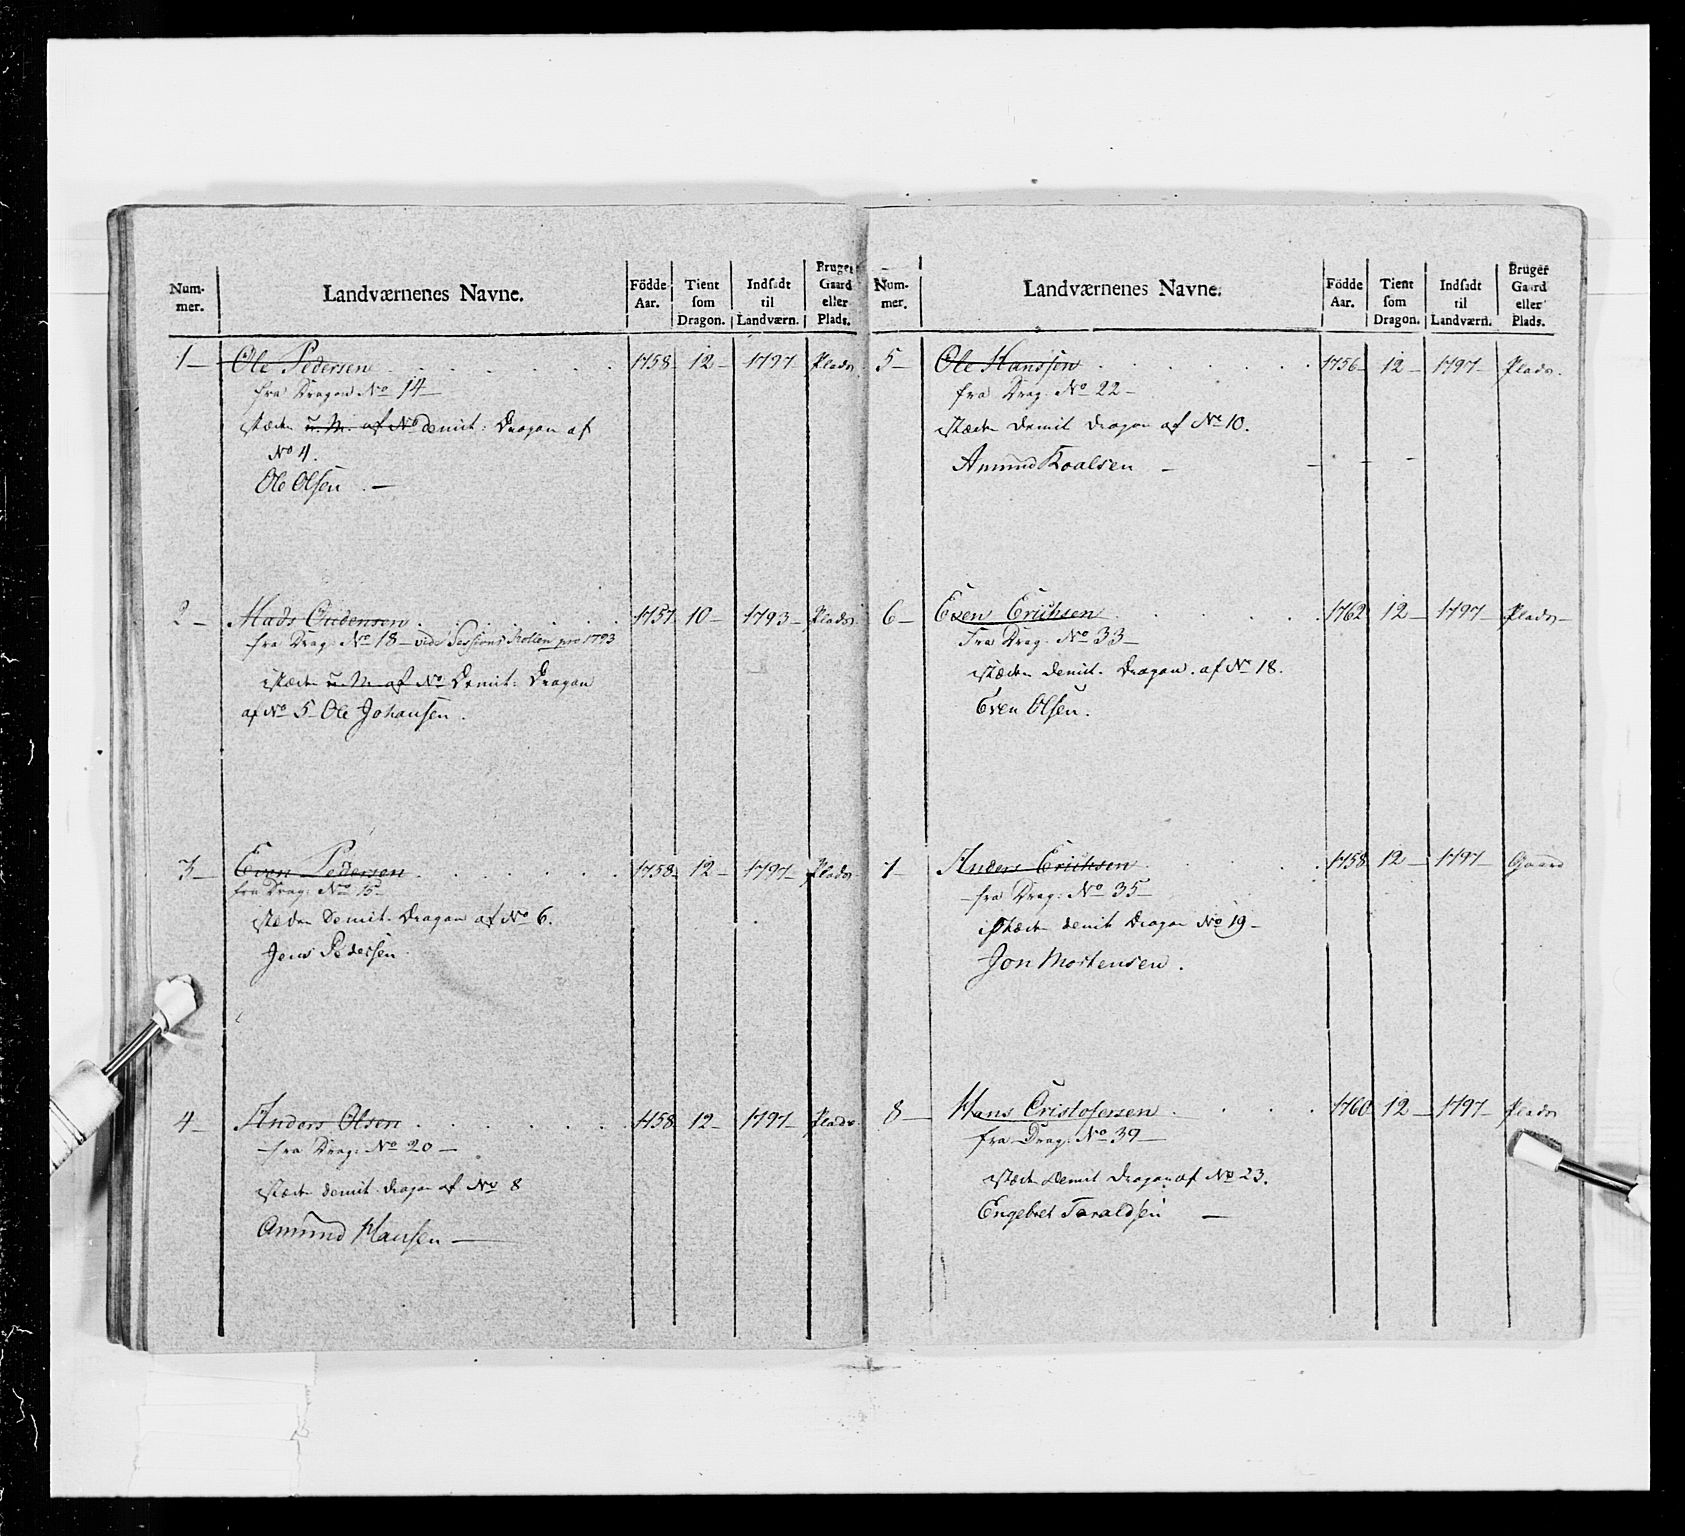 Num-mer. Landværnenes Navne. Födde Aar. Tient som Dragon. Indsadt til Landværn. Bruger Gaard eller Plads.
1 — Ole Pedersen . . . . . . 1758 12 — 1797 Plads
fra Dragon No 14 —
istæden u. M. af No demit: Dragon af
No 4.
Ole Olsen . —
2 — Mads Oudensen . . . . . . 1757 10 — 1793 — Plads
fra Drag: No 18 — vide Sessions Rollen pro 1793
istæden u. M. af No Demit: Dragon
af No 5 — Ole Johansen .
3 — Even Pedersen . . . . . . 1758 12 — 1797 — Plads
fra Drag: No 15 —
istæden demit. Dragon af No 6.
Jens Pedersen.
4 — Anders Olsen . . . . . . 1758 12 — 1797 — Plads
fra Drag: No 20 —
istæden demit. dragon af No 8
Amund Hansen —
Num-mer. Landværnenes Navne. Födde Aar. Tient som Dragon. Indsadt til Landværn. Bruger Gaard eller Plads.
5 — Ole Hanssen . . . . . . 1756 — 12 — 1797 — Plads.
fra Drag: No 22 —
istæden demit dragon af No 10.
Amund Roalsen —
6 — Even Erichsen . . . . . 1762 12 — 1797 — Plads —
fra Drag: No 33 —
istæden demit. Dragon. af No 18.
Even Olsen.
7 — Anders Erichsen . . . . . 1758 12 — 1797 — Gaard
fra Drag: No 35 —
istæden demit Dragon No 19 —
Jon Mortensen .
8 — Hans Cristofersen . . . . . 1760 12 — 1797 — Plads
fra Drag: No 39 —
istæden Demit dragon af No 23.
Engebret Taraldsen —